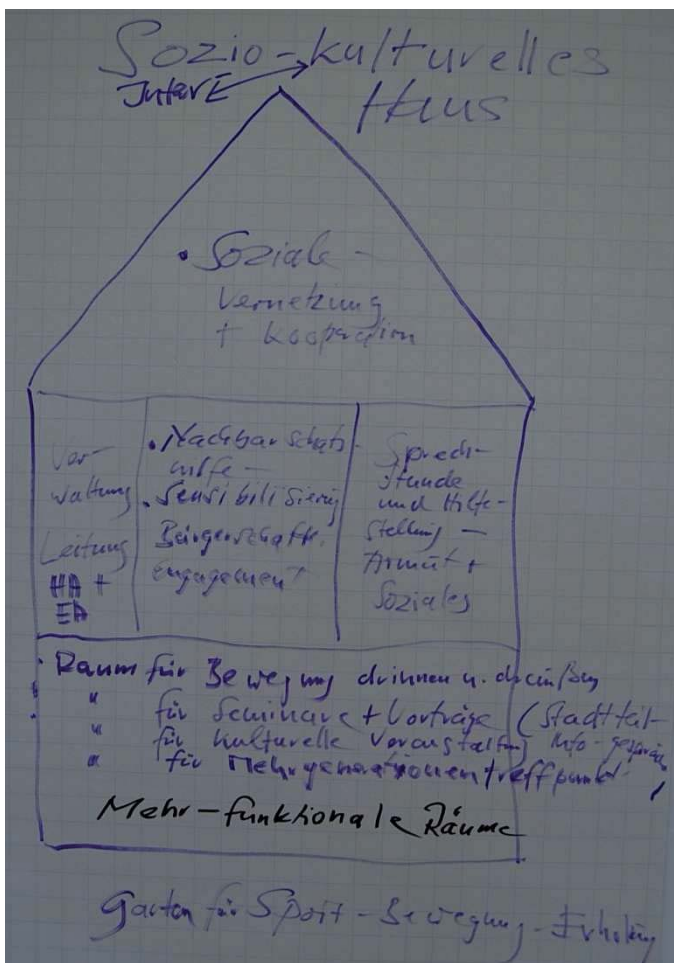 Sozio-kulturelles
InterE
Haus
• Soziale -
Vernetzung
+ Kooperation
Ver-
waltung
Leitung
HA +
EA
• Nachbarschafts-
hilfe -
• Sensibilisierung
Bürgerschaftl.
Engagement
Sprech-
stunde
und Hilfe-
stellung -
Armut +
Soziales
• Raum für Bewegung drinnen u. draußen
" für Seminare + Vorträge (Stadtteil-
" für kulturelle Veranstaltung Info-gespräch
" für Mehrgenerationentreffpunkt
Mehr-funktionale Räume
Garten für Sport - Bewegung - Erholung